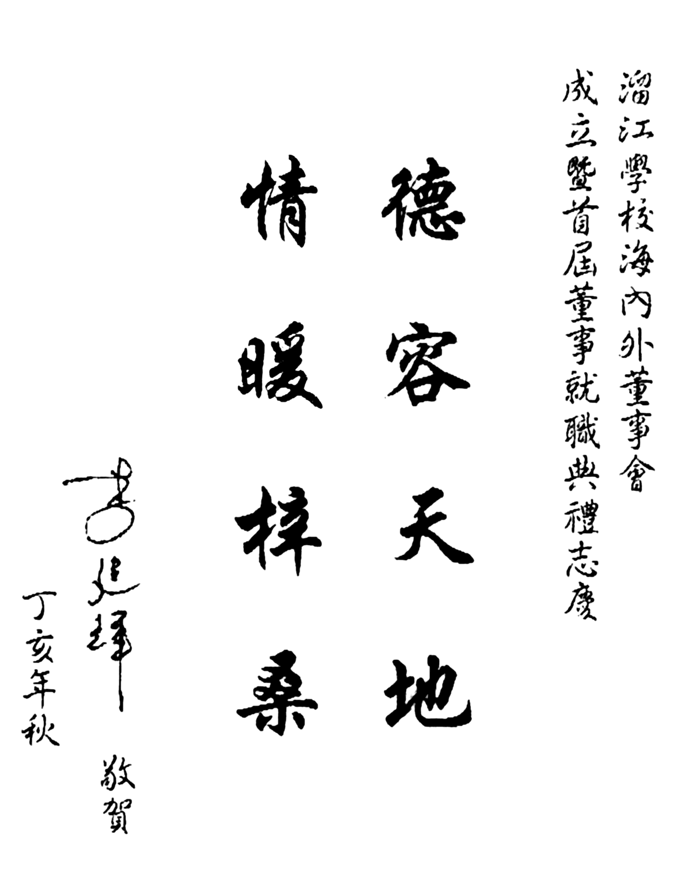 溜江學校海內外董事會
成立暨首屆董事就職典禮志慶
德容天地
情暖梓桑
建輝 敬賀
丁亥年秋